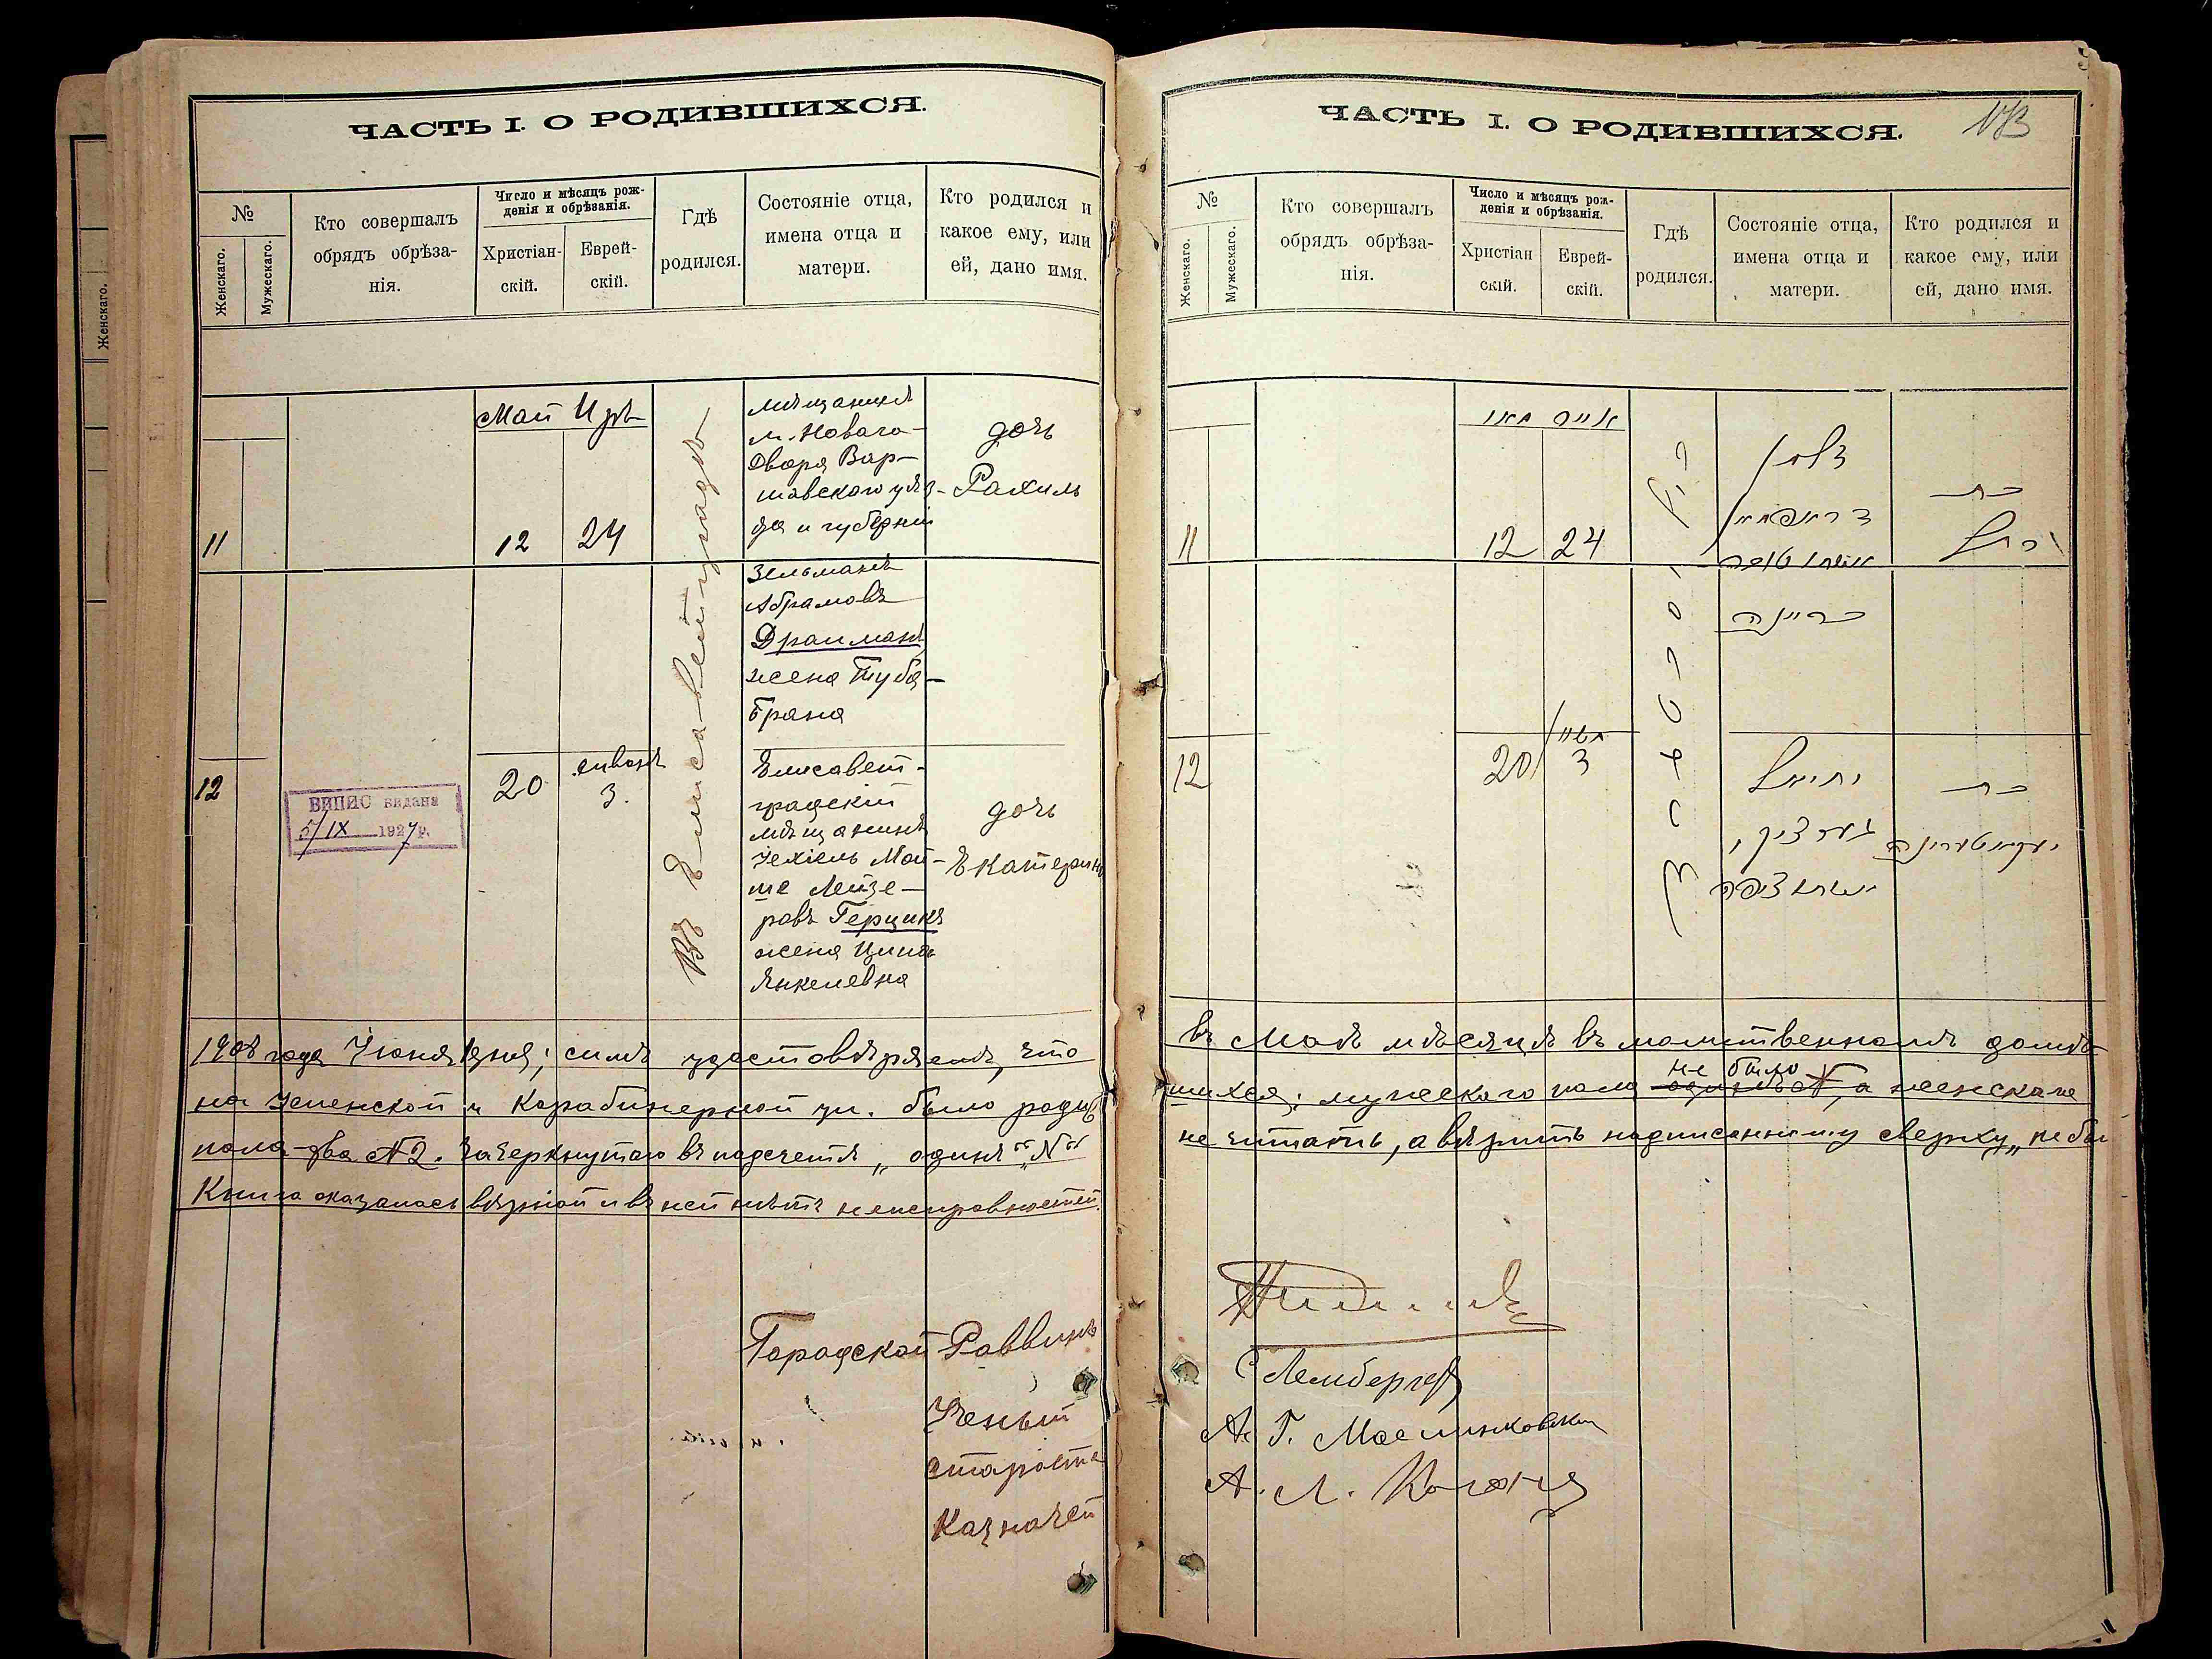 ЧАСТЬ I. О РОДИВШИХСЯ.
№
Женскаго.
Мужескаго.
Кто совершалъ
обрядъ обрѣза-
нія.
Число и мѣсяцъ рож-
денія и обрѣзанія.
Христіан-
скій.
Еврей-
скій.
Гдѣ
родился.
Состояніе отца,
имена отца и
матери.
Кто родился и
какое ему, или
ей, дано имя.
Май Іръ
11
12
24
Въ Елисаветградѣ
мѣщанинъ
м. Новаго-
Двора Вар-
шавскаго уѣз-
да и губерніи
Зельманъ
Абрамовъ
Драпманъ
жена Туба-
Брана
дочь
Рахиль
12
ВИПИС видана
5/IX 1927 р.
20
сиванъ
3.
Елисавет-
градскій
мѣщанинъ
Іехіель Мой-
ше Лейзе-
ровъ Герцикъ
жена Ципа
Янкелевна
дочь
Екатерина
1908 года Іюня 1 дня; симъ удостовѣряемъ, что
на Успенской и Карабинерной ул. было родив
пола два № 2. Зачеркнутаго въ подсчетѣ „один“ „№“
Книга оказалась вѣрной и въ ней нѣтъ неисправностей.
Городской Раввинъ
Ученый
Староста
Казначей
ЧАСТЬ I. О РОДИВШИХСЯ.
№
Женскаго.
Мужескаго.
Кто совершалъ
обрядъ обрѣза-
нія.
Число и мѣсяцъ рож-
денія и обрѣзанія.
Христіан
скій.
Еврей-
скій.
Гдѣ
родился.
Состояніе отца,
имена отца и
матери.
Кто родился и
какое ему, или
ей, дано имя.
11
12
24
בת
רחל
12
20
סיון
3
יחיאל
גערציק,
בת
יעקאטערינה
въ Маѣ мѣсяцѣ въ молитвенномъ домѣ
не было
шихся: мужескаго пола одинъ №, а женскаго
не читать, а вѣрить надписанному сверху „не бы
С Лембергъ
А. Г. Маслинковскій
А. Л. Коганъ